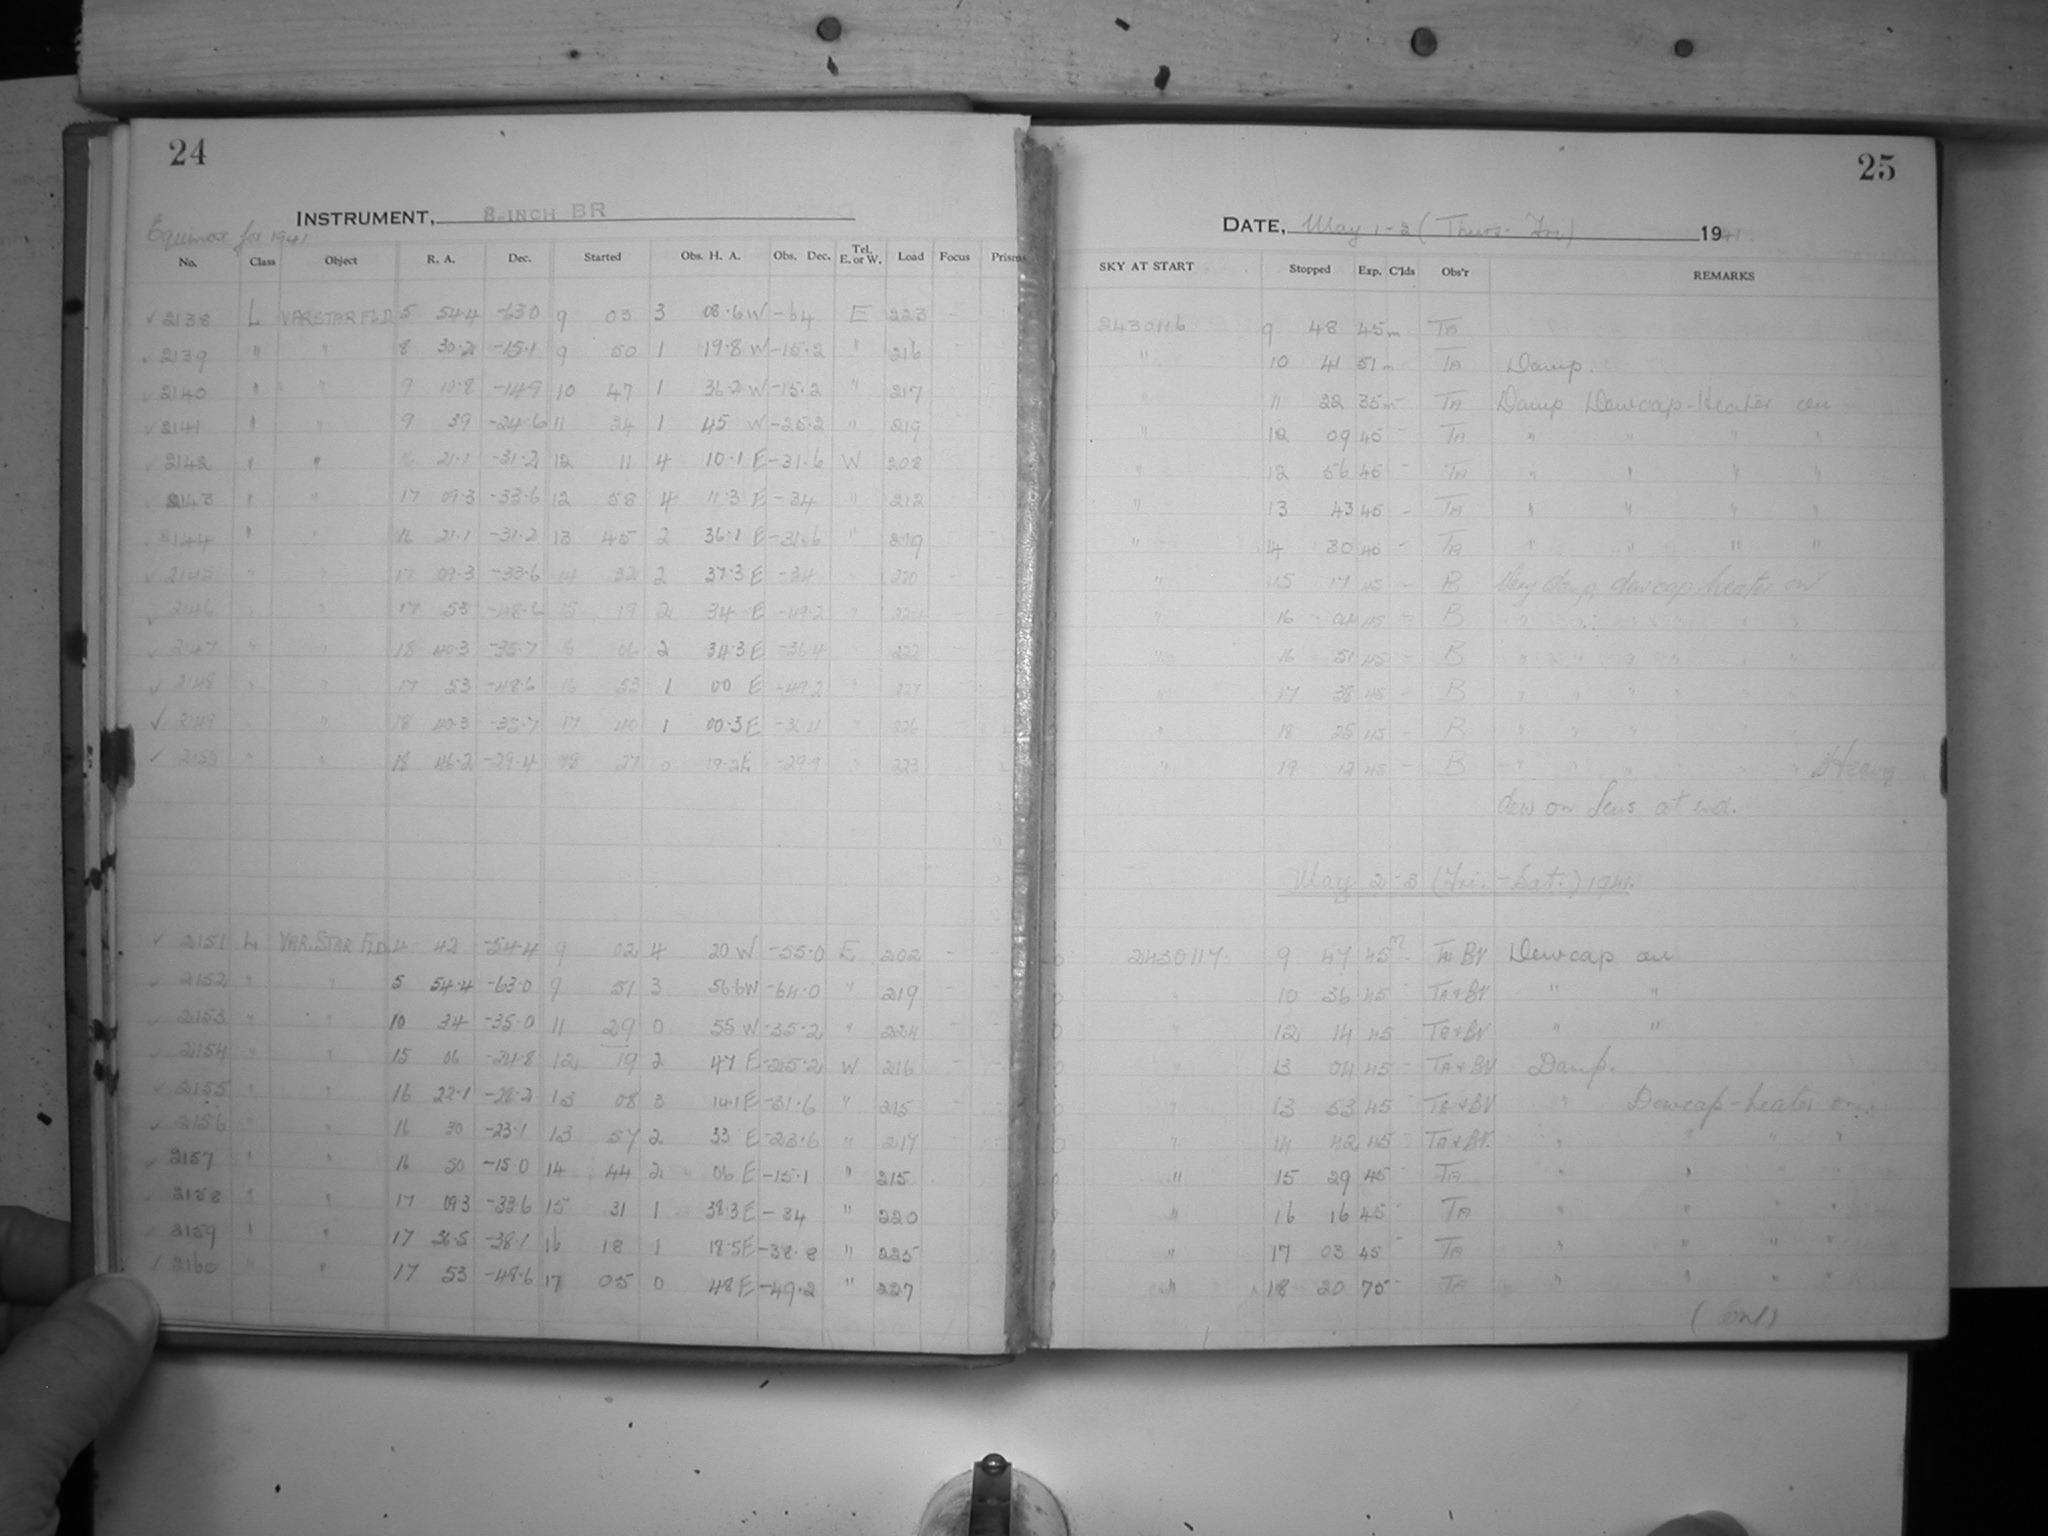 24
INSTRUMENT, 8-INCH BR
Equinox for 1941
No. Class Object R. A. Dec. Started Obs. H. A. Obs. Dec. Tel. E. or W. Load Focus Prisms
2138 L VAR.STAR FLD 5 54.4 -63.0 9 03 3 08.6 W -64 E 223
2139 " " 8 30.2 -15.1 9 50 1 19.8 W -15.2 " 216
2140 " " 9 10.8 -14.9 10 47 1 36.2 W -15.2 " 217
2141 " " 9 39 -24.6 11 24 1 45 W -25.2 " 219
2142 " " 16 21.1 -31.2 12 11 4 10.1 E -31.6 W 208
2143 " " 17 09.3 -33.6 12 58 4 11.3 E -34 " 212
2144 " " 16 21.1 -31.2 13 45 2 36.1 E -31.6 " 219
2145 " " 17 09.3 -33.6 14 32 2 37.3 E -34 " 220
2146 " " 17 53 -48.6 15 19 2 34 E -49.2 "
2147 " " 18 40.3 -35.7 16 06 2 34.3 E -36.4 " 222
2148 " " 17 53 -48.6 16 53 1 00 E -49.2 " 227
2149 " " 18 40.3 -35.7 17 40 1 00.3 E " 226
2150 " " 18 46.2 -29.4 18 27 0 19.2 E -29.9 " 223
2151 L VAR.STAR FLD. 4 42 -54.4 9 02 4 20 W -55.0 E 202
2152 " " 5 54.4 -63.0 9 51 3 56.6 W -64.0 " 219
2153 " " 10 34 -35.0 11 29 0 55 W -35.2 " 224
2154 " " 15 06 -24.8 12 19 2 47 E -25.2 W 216
2155 " " 16 22.1 13 08 3 14.1 E -31.6 " 215
2156 " " 16 30 -23.1 13 57 2 33 E -23.6 " 217
2157 " " 16 50 -15.0 14 44 2 06 E -15.1 " 215
2158 " " 17 09.3 -33.6 15 31 1 38.3 E -34 " 220
2159 " " 17 36.5 -38.1 16 18 1 18.5 E -38.8 " 225
2160 " " 17 53 -48.6 17 05 0 48 E -49.2 " 227
25
DATE, May 1-2 (Thurs-Fri) 1941
SKY AT START Stopped Exp. C'lds Obs'r REMARKS
2430116 9 48 45m TA
" 10 41 51m TA Damp.
11 22 35m TA Damp Dewcap-Heater on
" 12 09 45 - TA " " " "
" 12 56 45 - TA " " " "
" 13 43 45 - TA " " " "
" 14 30 45 - TA " " " "
" 15 17 45 - B Very damp, dewcap heater on
" 16 04 45 - B " " " "
" 16 51 45 - B " " " "
" 17 38 45 - B " " " "
" 18 25 45 - B " " " "
" 19 12 45 - B " " " " Heavy
dew on lens at end.
May 2-3 (Fri.-Sat.) 1941.
2430117. 9 47 45m - TA BV Dewcap on
" 10 36 45 - TA+BV " "
" 12 14 45 - TA+BV " "
" 13 04 45 - TA+BV Damp.
" 13 53 45 - TA+BV " Dewcap-heater on.
" 14 42 45 - TA+BV. " " " "
" 15 29 45 - TA " "
" 16 16 45 - TA " " " "
" 17 03 45 - TA " " " "
" 18 20 75 - TA " " " "